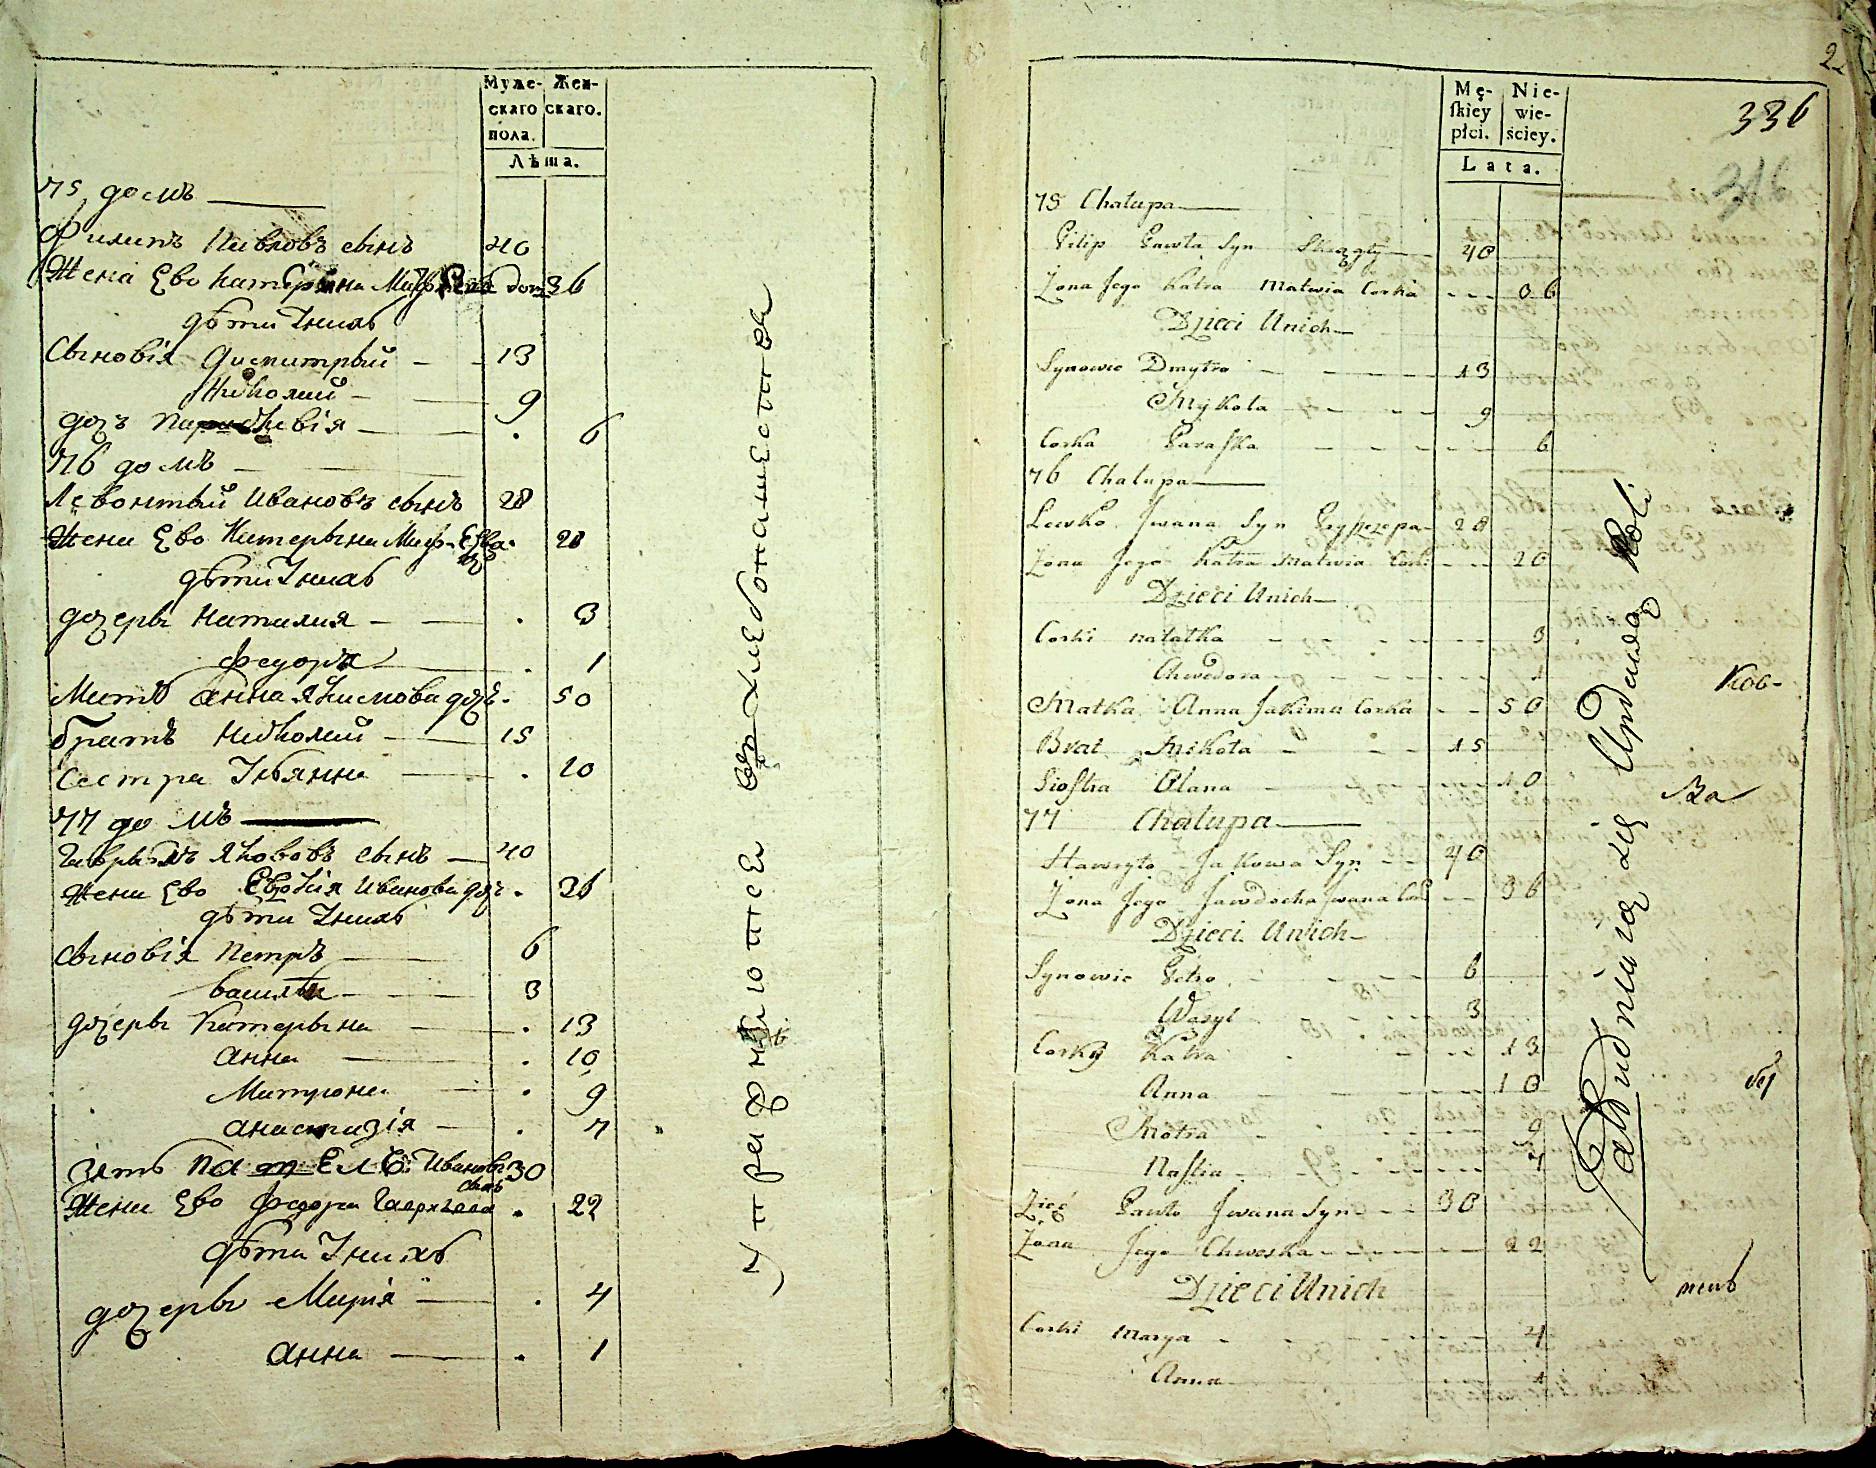 Муже-
скаго
пола.
Жен-
скаго.
Лѣта.
75 домъ
Филипъ Павловъ сынъ 40
Жена Ево Катерина 36
дѣти Унихъ
Сыновія Димитрый 13
Николай 9
дочь Парасковія 6
76 домъ
Левонтый Ивановъ сынъ 28
Жена Ево Катерына 20
дѣти Унихъ
дочеры Наталия 3
Федора 1
Мать Анна Якимова дочь 50
братъ Николай 15
Сестра Ульянна 10
77 домъ
Гаврыло Яковов сынъ 40
Жена Ево Евдокія Иванова дочь 36
дѣти Унихъ
Сыновія Петръ 6
Василь 3
дочеры Катерына 13
Анна 10
Матрона 9
Анастазія 7
Зять Павелъ Ивановъ сынъ 30
Жена Ево Федора Гаврилова 22
дѣти Унихъ
дочеры Марія 4
Анна 1
упражняютсе въ хлебопашестве
2
336
316
Mę-
ſkiey
płci.
Nie-
wie-
ściey.
Lata.
75 Chałupa
Filip Pawła Syn 40
Zona Jego Katra Matwia Corka 36
Dzieci Unich
Synowie Dmytro 13
Mykoła 9
Corka Paraſka 6
76 Chałupa
Lewko Jwana Syn 28
Zona Jego Katra Matwia Cork: 20
Dzieci Unich
Corki Natałka 3
Chwedora 1
Matka Anna Jakima Corka 50
Brat Mikoła 15
Sioſtra Ulana 10
77 Chałupa
Hawryło Jakowa Syn 40
Zona Jego Jawdocha Jwana Cor 36
Dzieci Unich
Synowie Petro 6
Wasyl 3
Corky Katra 13
Anna 10
Motra 9
Naſtia 7
Zięć Pawło Jwana Syn 30
Zona Jego Chweśka 22
Dzieci Unich
Corki Marya 4
Anna 1
Zatrudniaią się Uprawą Roli